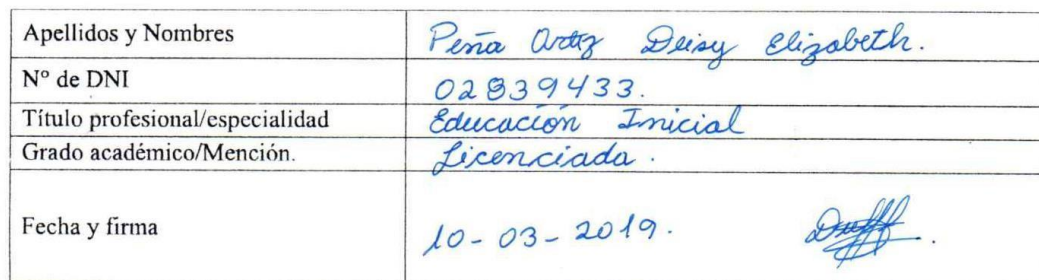 Apellidos y Nombres Peña Ortiz Deisy Elizabeth.
N° de DNI 02839433.
Título profesional/especialidad Educación Inicial
Grado académico/Mención. Licenciada.
Fecha y firma 10-03-2019.